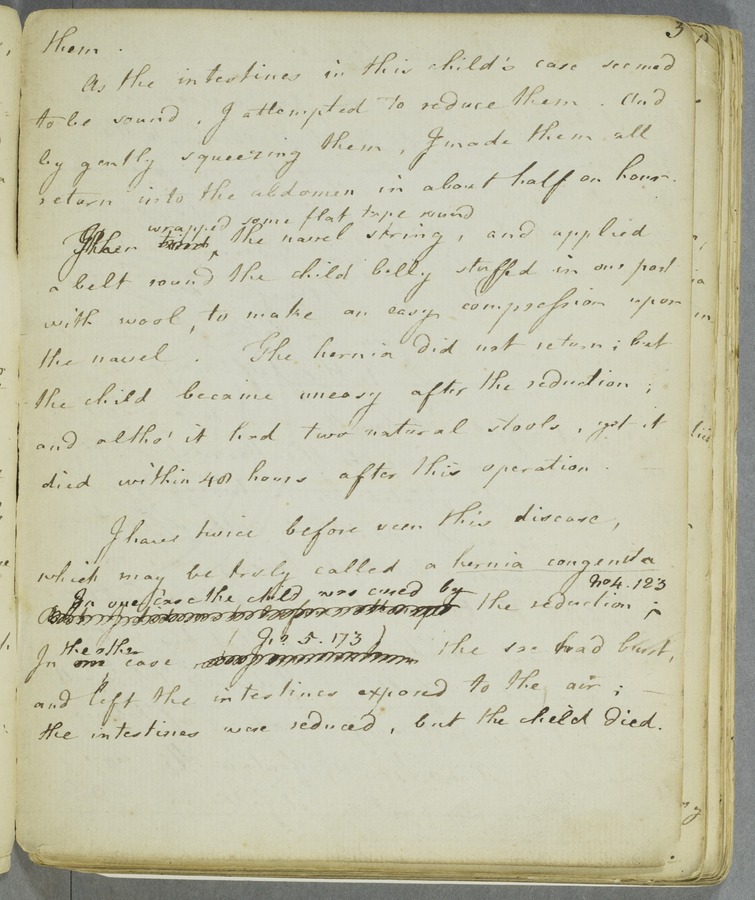 3
them.
As the intestines in this child's case seemed
to be sound, I attempted to reduce them. And
by gently squeezing them, I made them all
return into the abdomen in about half an hour.
wrapped some flat tape round
I then the navel string, and applied
a belt round the child belly stuff'd in one part
with wool, to make an easy compression upon
the navel. The hernia did not return; but
the child became uneasy after the reduction;
and altho' it had two natural stools, yet it
died within 48 hours after this operation. —
I have twice before seen this disease,
which may be truly called a hernia congenita
No 4. 123
In one case the child was cured by
the reduction;
the other No. 5. 173)
In case the sac had burst,
and left the intestines exposed to the air; —
the intestines were reduced, but the child died.